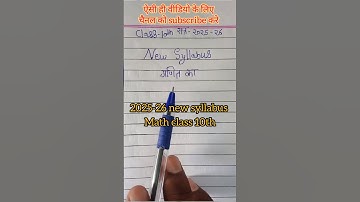 ऐसी ही वीडियो के लिए
चैनल को subscribe करें
Class-10th सत्र-2025-26
New Syllabus
गणित का
2025-26 new syllabus
Math class 10th